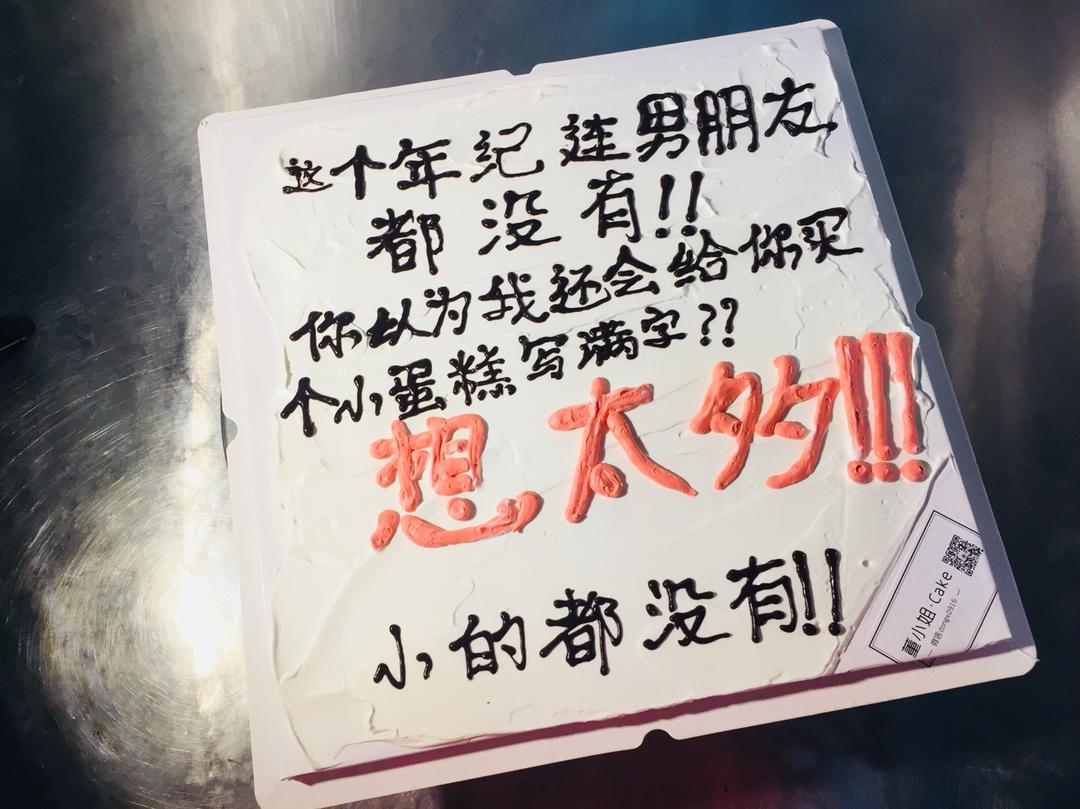 这个年纪连男朋友
都没有!!
你以为我还会给你买
个小蛋糕写满字??
想太多!!!
小的都没有!!
董小姐·Cake
微信:dongx0916